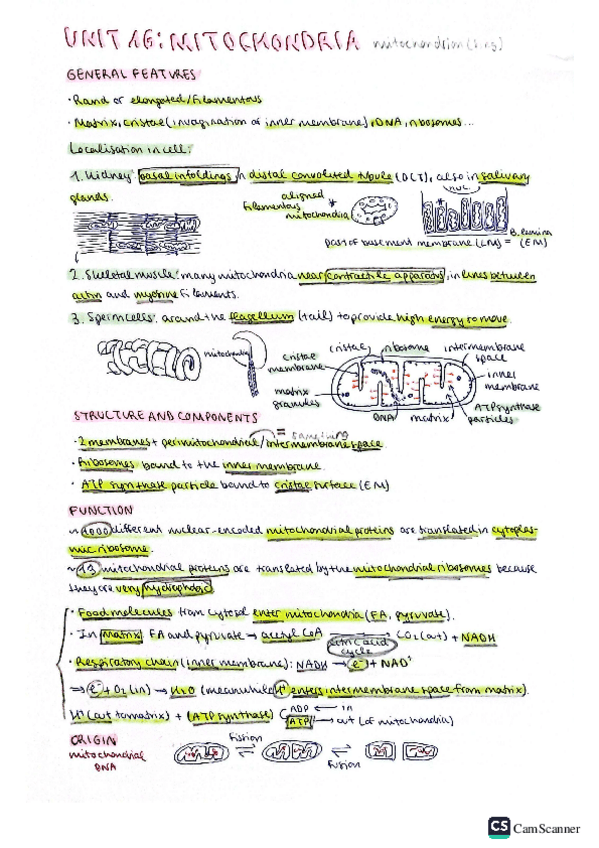 UNIT 16: MITOCHONDRIA mitochondrion (sing)
GENERAL FEATURES
· Rand or elongated/filamentous
· Matrix, cristae (invagination of inner membrane), DNA, ribosomes...
Localisation in cell:
1. Kidney: basal infoldings in distal convoluted tubule (DCT), also in salivary
glands.
aligned
filamentous
mitochondria
nuc.
B. lamina
part of basement membrane (LM) = (EM)
2. Skeletal muscle: many mitochondria near contractile apparatus, in lines between
actin and myosine filaments.
3. Sperm cells: around the flagellum (tail) to provide high energy to move.
mitochondria
cristae
membrane
cristae
ribosome
intermembrane
space
inner
membrane
matrix
granules
DNA
matrix
ATP synthase
particles
STRUCTURE AND COMPONENTS
= same thing
· 2 membranes + perimitochondrial/intermembrane space.
· Ribosomes bound to the inner membrane.
· ATP synthase particle bound to cristae surface (EM)
FUNCTION
~1000 different nuclear-encoded mitochondrial proteins are translated in cytoplas-
mic ribosome.
~13 mitochondrial proteins are translated by the mitochondrial ribosomes because
they are very hydrophobic
· Food molecules from cytosol enter mitochondria (FA, pyruvate).
· In matrix FA and pyruvate → acetyl CoA → CO2 (out) + NADH
citric acid
cycle
· Respiratory chain (inner membrane): NADH → e⁻ + NAD⁺
⇒ e⁻ + O2 (in) → H2O (meanwhile H⁺ enters intermembrane space from matrix).
H⁺ (out to matrix) + (ATP synthase) ADP ← in
ATP → out (of mitochondria)
ORIGIN
mitochondrial
DNA
Fission
Fusion
CS CamScanner